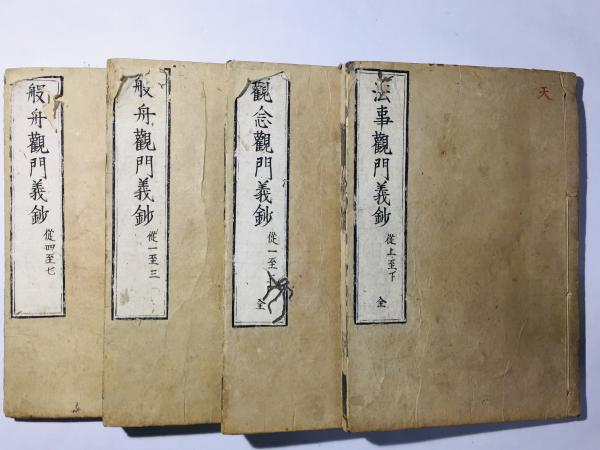 天
法事觀門義鈔
從上至下
全
觀念觀門義鈔
從一至
全
般舟觀門義鈔
從一至三
般舟觀門義鈔
從四至七